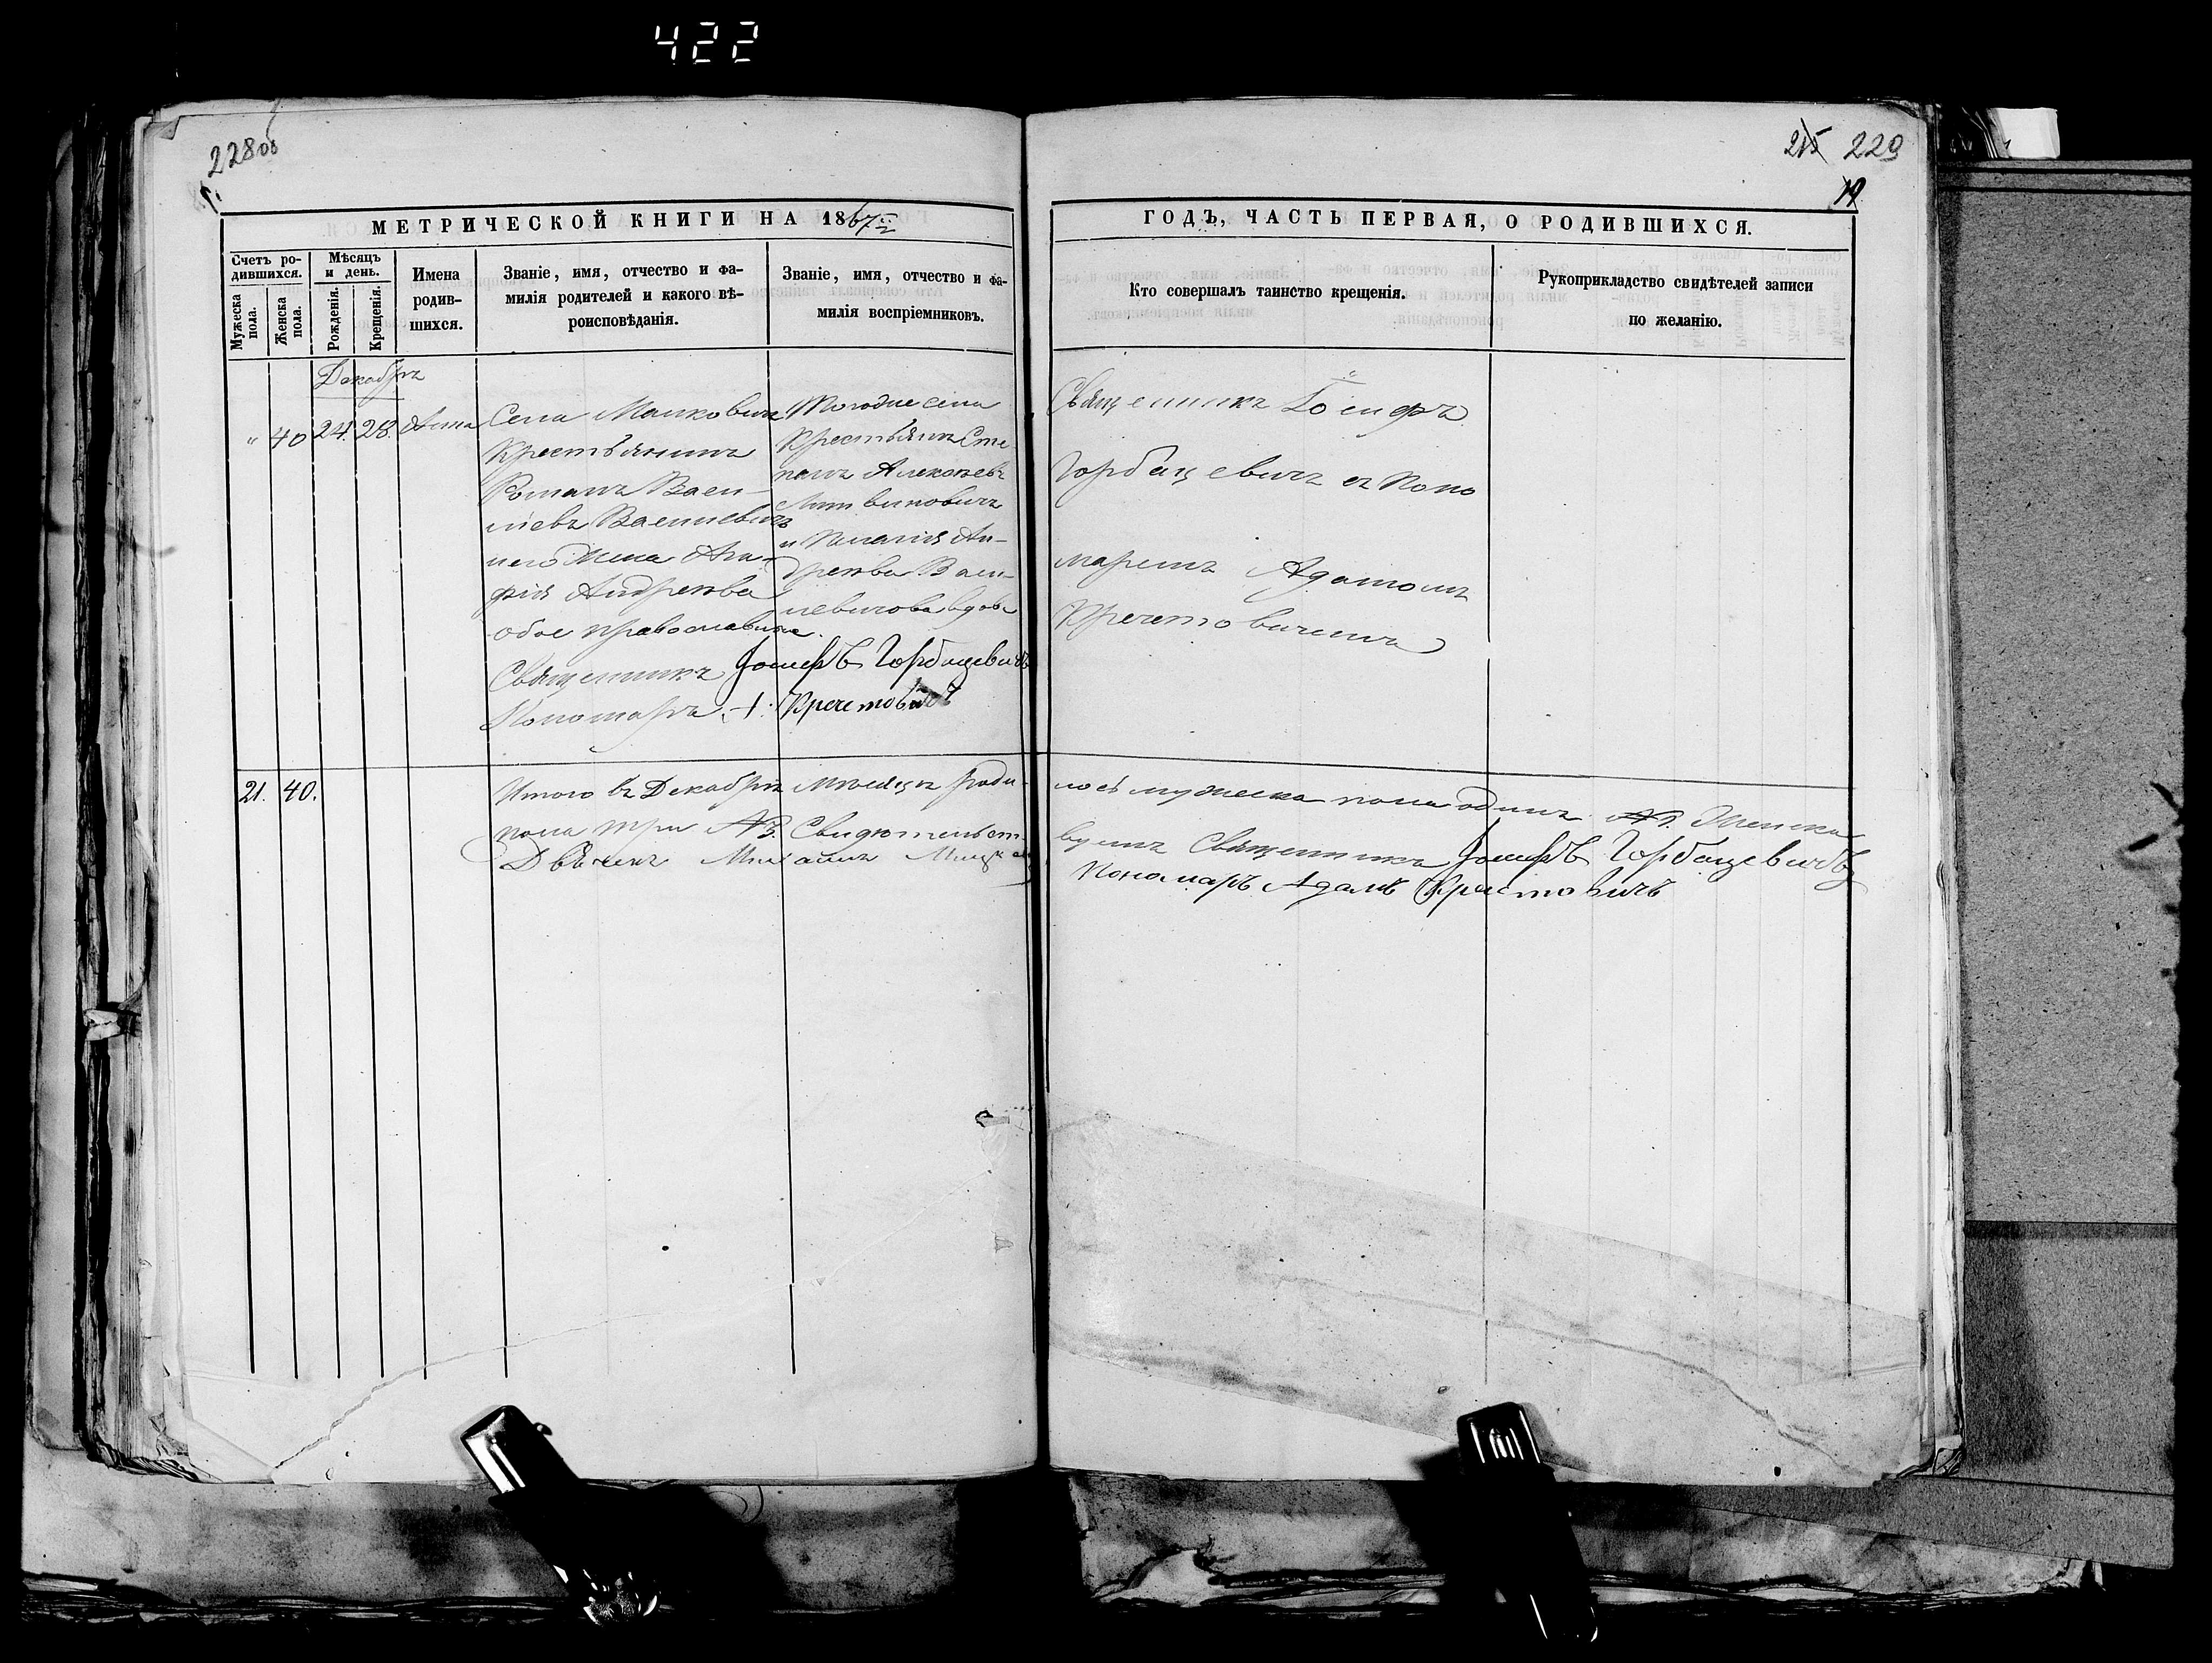 422
228об
215 229
19
МЕТРИЧЕСКОЙ КНИГИ НА 1867й
ГОДЪ, ЧАСТЬ ПЕРВАЯ, О РОДИВШИХСЯ.
Счетъ ро-
дившихся.
Мужеска
пола.
Женска
пола.
Мѣсяцъ
и день.
Рожденія.
Крещенія.
Имена
родив-
шихся.
Званіе, имя, отчество и фа-
милія родителей и какого вѣ-
роисповѣданія.
Званіе, имя, отчество и фа-
милія воспріемниковъ.
Кто совершалъ таинство крещенія.
Рукоприкладство свидѣтелей записи
по желанію.
Декабрь
" 40 24. 28. Анна
Села Малковичъ
Крестьянинъ
Романъ Васи-
ліевъ Василевичъ
и его жена Ага-
фія Андреева
обое православные.
Тогоже села
Крестьянъ Сте
панъ Алексѣевъ
Литвиновичъ
и Пелагія Ан-
дреева Васи-
левичова вдова
Священникъ Іосифъ Горбацевичъ
Пономарь + Кречетовичъ
Священникъ Іосифъ
Горбацевичъ съ Поно
маремъ Адамомъ
Кречетовичемъ
21. 40.
Итого въ Декабрѣ мѣсяцѣ роди-
лось мужеска пола одинъ №1. Женска
пола три №3. Свидѣтельст-
вуемъ Священникъ Іосифъ Горбацевичъ
Дьячекъ Михаилъ
Пономарь Адамъ Кречетовичъ